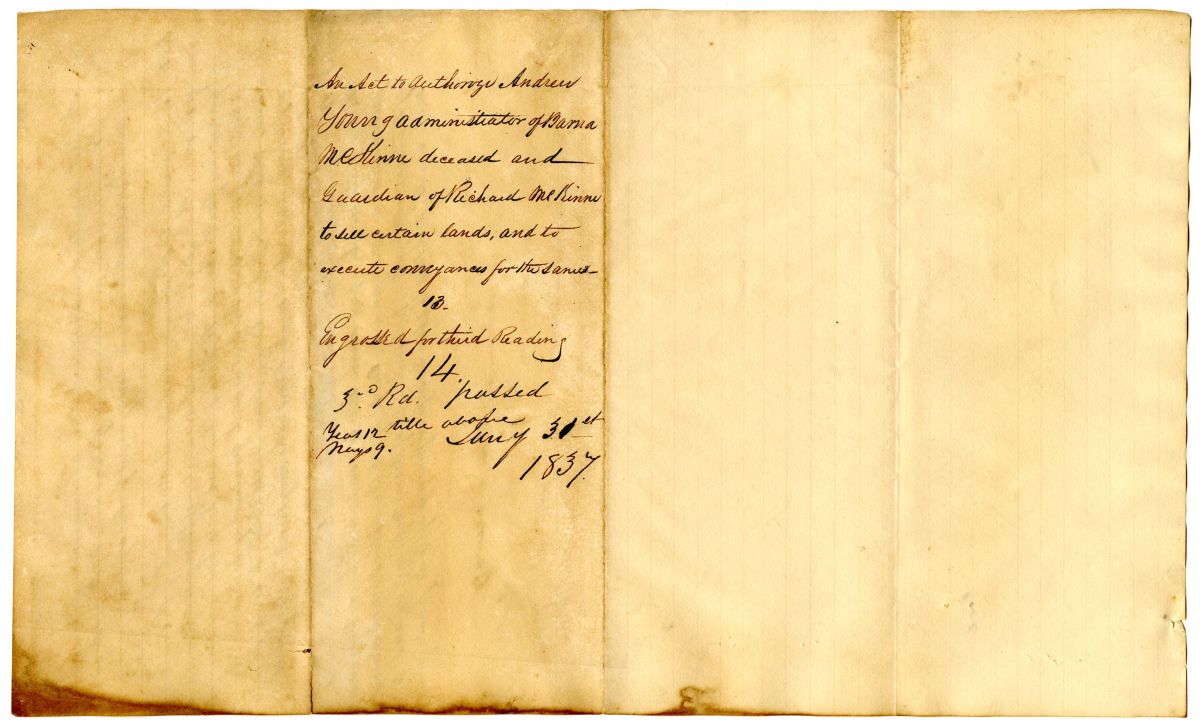 An Act to authorize Andrew
Young administrator of Barna
McKinne deceased and
Guardian of Richard McKinne
to sell certain lands, and to
execute conveyances for the same—
13—
Engrossed for third Reading
14.
3rd. Rd. passed
title above
Yeas 12
Nays 9.
Jany 31st
1837.